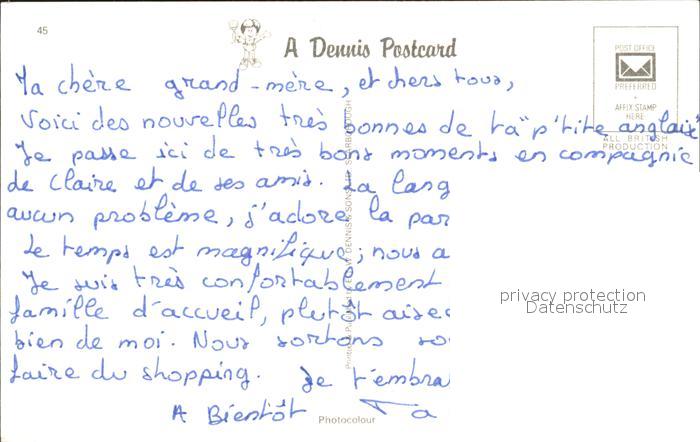 45
A Dennis Postcard
POST OFFICE
PREFERRED
AFFIX STAMP
HERE
ALL BRITISH
PRODUCTION
Ma chère grand-mère, et chers tous,
Voici des nouvelles très bonnes de ta "p'tite anglaise"
Je passe ici de très bons moments en compagnie
de Claire et de ses amis. La lang
aucun problème, j'adore la par
Le temps est magnifique ; nous a
Je suis très confortablement
famille d'accueil, plutôt aisé
bien de moi. Nous sortons so
faire du shopping. Je t'embra
A Bientôt Ta
Photocolour
privacy protection
Datenschutz